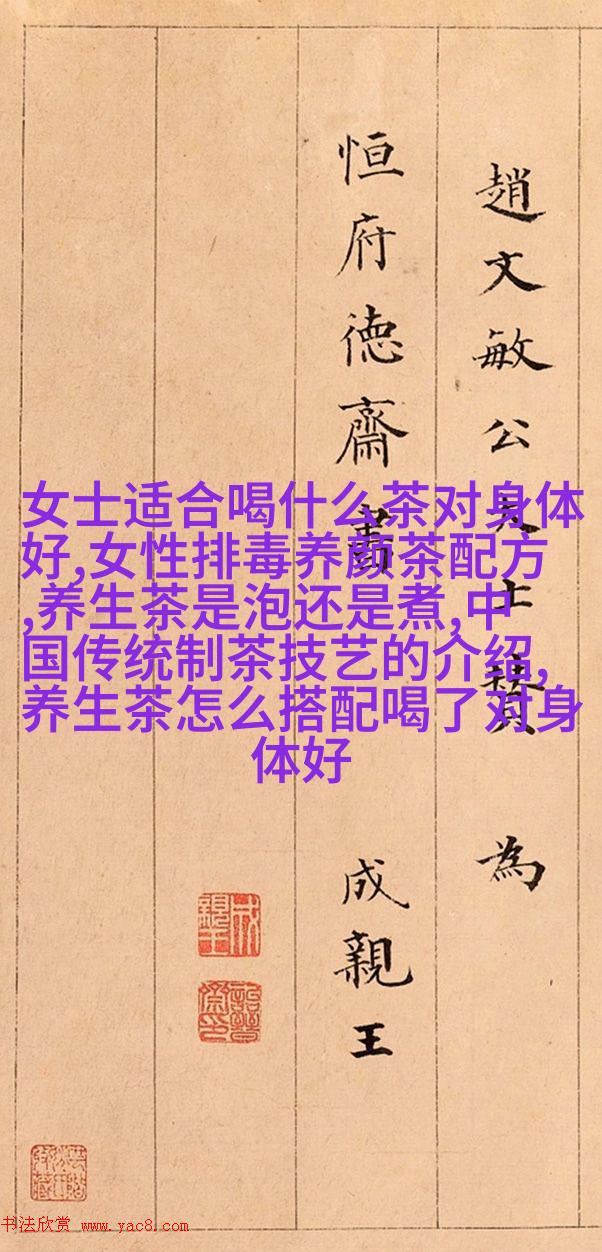 趙文敏公大士贊為
恒府德齋書
成親王
女士适合喝什么茶对身体
好,女性排毒养颜茶配方
,养生茶是泡还是煮,中
国传统制茶技艺的介绍,
养生茶怎么搭配喝了对身
体好
成親王
詒晉齋印
书法欣赏 www.yac8.com